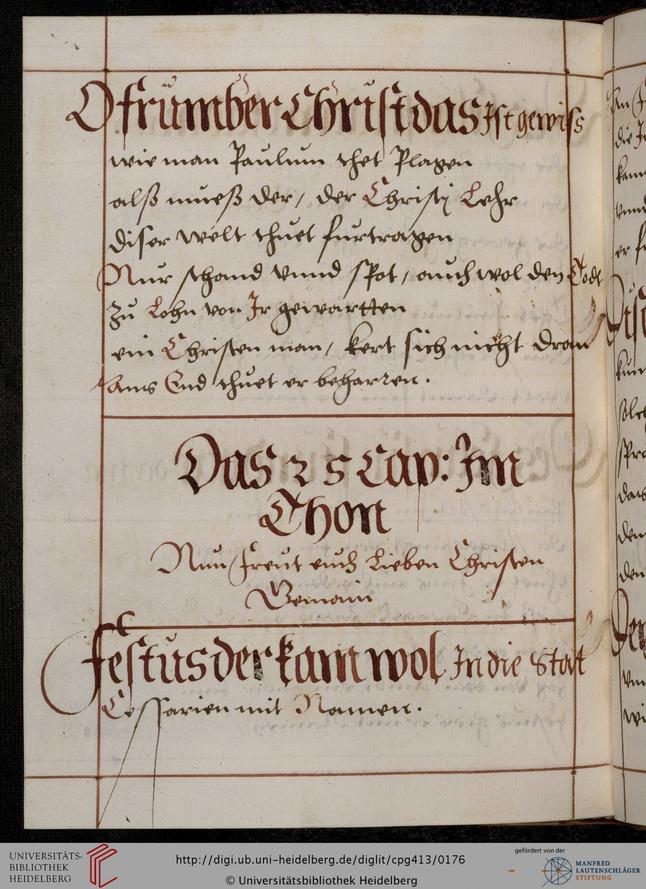 O frumber Christ das Ist gewiss
wie man Paulum thet Plagen
alß mueß der, der Christÿ Lehr
diser welt thuet furtragen
Nur schand vnnd spot, auch wol den Todt
Zu Lohn von Ir gewartten
ein Christen man, kert sich nicht dran
Ans End thuet er beharren.
Das 25 Cap: Im
Thon
Nun freut euch Lieben Christen
Gemain
Festus der kam wol In die Stat
Cessarien mit Namen.
UNIVERSITÄTS-
BIBLIOTHEK
HEIDELBERG
http://digi.ub.uni-heidelberg.de/diglit/cpg413/0176
© Universitätsbibliothek Heidelberg
gefördert von der
MANFRED
LAUTENSCHLÄGER
STIFTUNG